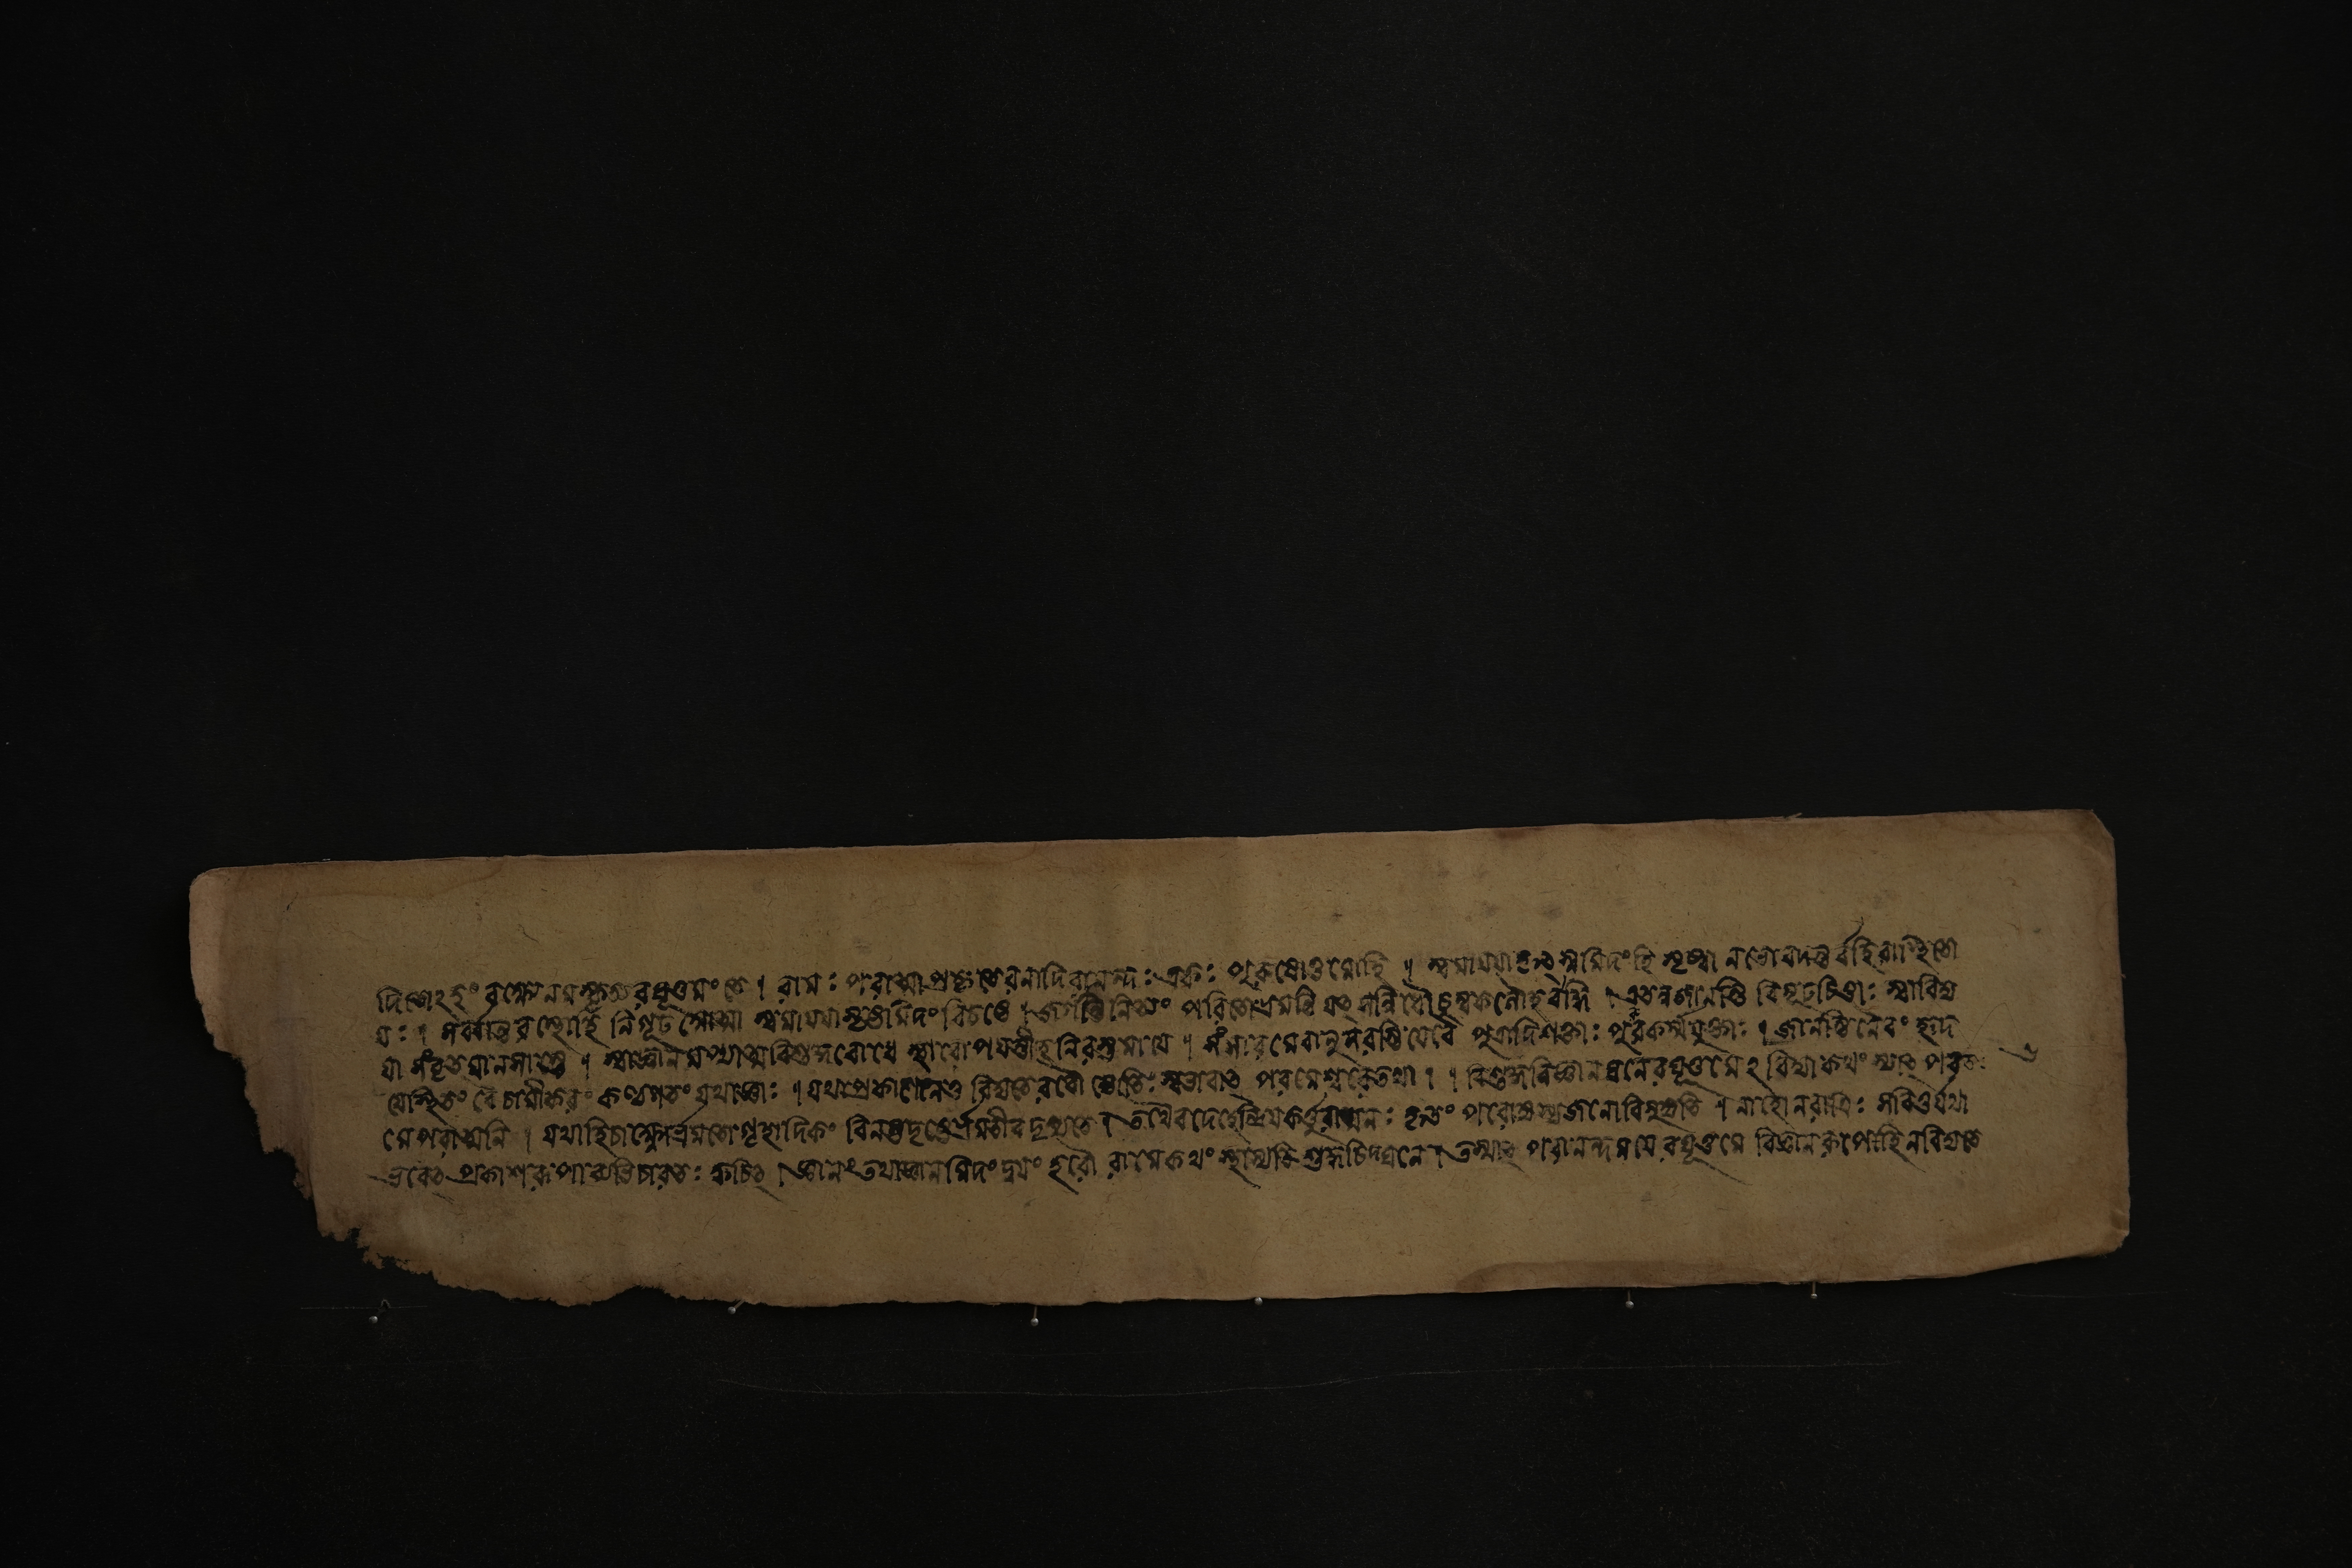 দিতোঽহং বক্ষ্যে নমস্কৃত্য রঘূত্তমং তে । রামঃ পরাত্মা প্রকৃতেরনাদিরানন্দঃ একঃ পুরুষোত্তমোহি । স্বমায়য়া কৃৎস্নমিদংহি সৃষ্ট্বা নভোবদন্তর্বহিরাস্থিতো
যঃ । সর্ব্বান্তরস্থোহি নিগূঢ় আত্মা স্বমায়য়া সৃষ্টমিদং বিচষ্টে । জগন্তি নিত্যং পরিতো ভ্রমন্তি যৎ সন্নিধৌ চুম্বকলৌহবদ্ধি । এতন্নজানন্তি বিমূঢ়চিত্তাঃ স্বাবিদ্য
যা সংবৃতমানসাস্তে । স্বাজ্ঞানমপ্যাত্মবিশুদ্ধবোধে স্বারোপযন্তীহ নিরস্তমায়ে । সংসারমেবানুসরন্তি যেবৈ পুত্রাদিশক্তাঃ পুরুকর্ম্মযুক্তাঃ । জানন্তিনৈবং হৃদ
য়েস্থিতং বৈ চামীকরং কণ্ঠগতং যথাজ্ঞাঃ । যথাপ্রকাশোনতু বিদ্যতে রবৌ জ্যোতিঃ স্বভাবাৎ পরমেশ্বরেতথা । বিশুদ্ধবিজ্ঞানঘনেরঘূত্তমে ঽবিদ্যা কথং স্যাৎ পরতঃ
মে পরাত্মনি । যথাহিচাক্ষ্ণোর্ভ্রমতো গৃহাদিকং বিনষ্টদৃষ্টের্ভ্রমতীব দৃশ্যতে । তথৈবদেহেন্দ্রিয়কর্ত্তুরাত্মনঃ কৃতং পরোধ্যস্যজনোবিমুহ্যতি । নাহোনরাত্রিঃ সবিতুর্যথা
ভবেৎ প্রকাশরূপাব্যভিচারতঃ ক্বচিৎ । জ্ঞানং তথাজ্ঞানমিদং দ্বয়ং হরৌ রামেকথং স্থাস্যতি শুদ্ধচিদ্ঘনে । তস্মাৎ পরানন্দময়ে রঘূত্তমে বিজ্ঞানরূপেহিনবিদ্যতে